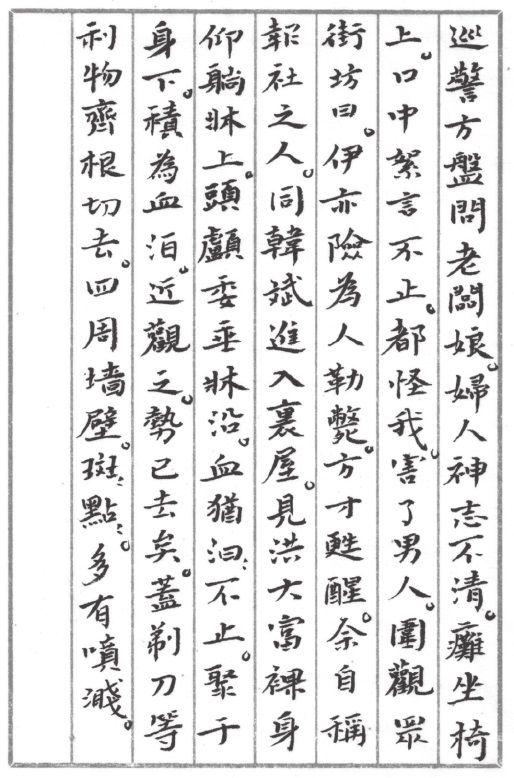 巡警方盤問老闆娘。婦人神志不清。癱坐椅
上。口中絮言不止。都怪我。害了男人。圍觀眾
街坊曰。伊亦險為人勒斃。方才甦醒。余自稱
報社之人。同韓斌進入裏屋。見洪大富裸身
仰躺牀上。頭顱委垂牀沿。血猶汩：不止。聚于
身下。積為血泊。近觀之。勢已去矣。蓋剃刀等
利物齊根切去。四周墻壁。斑：點：。多有噴濺。